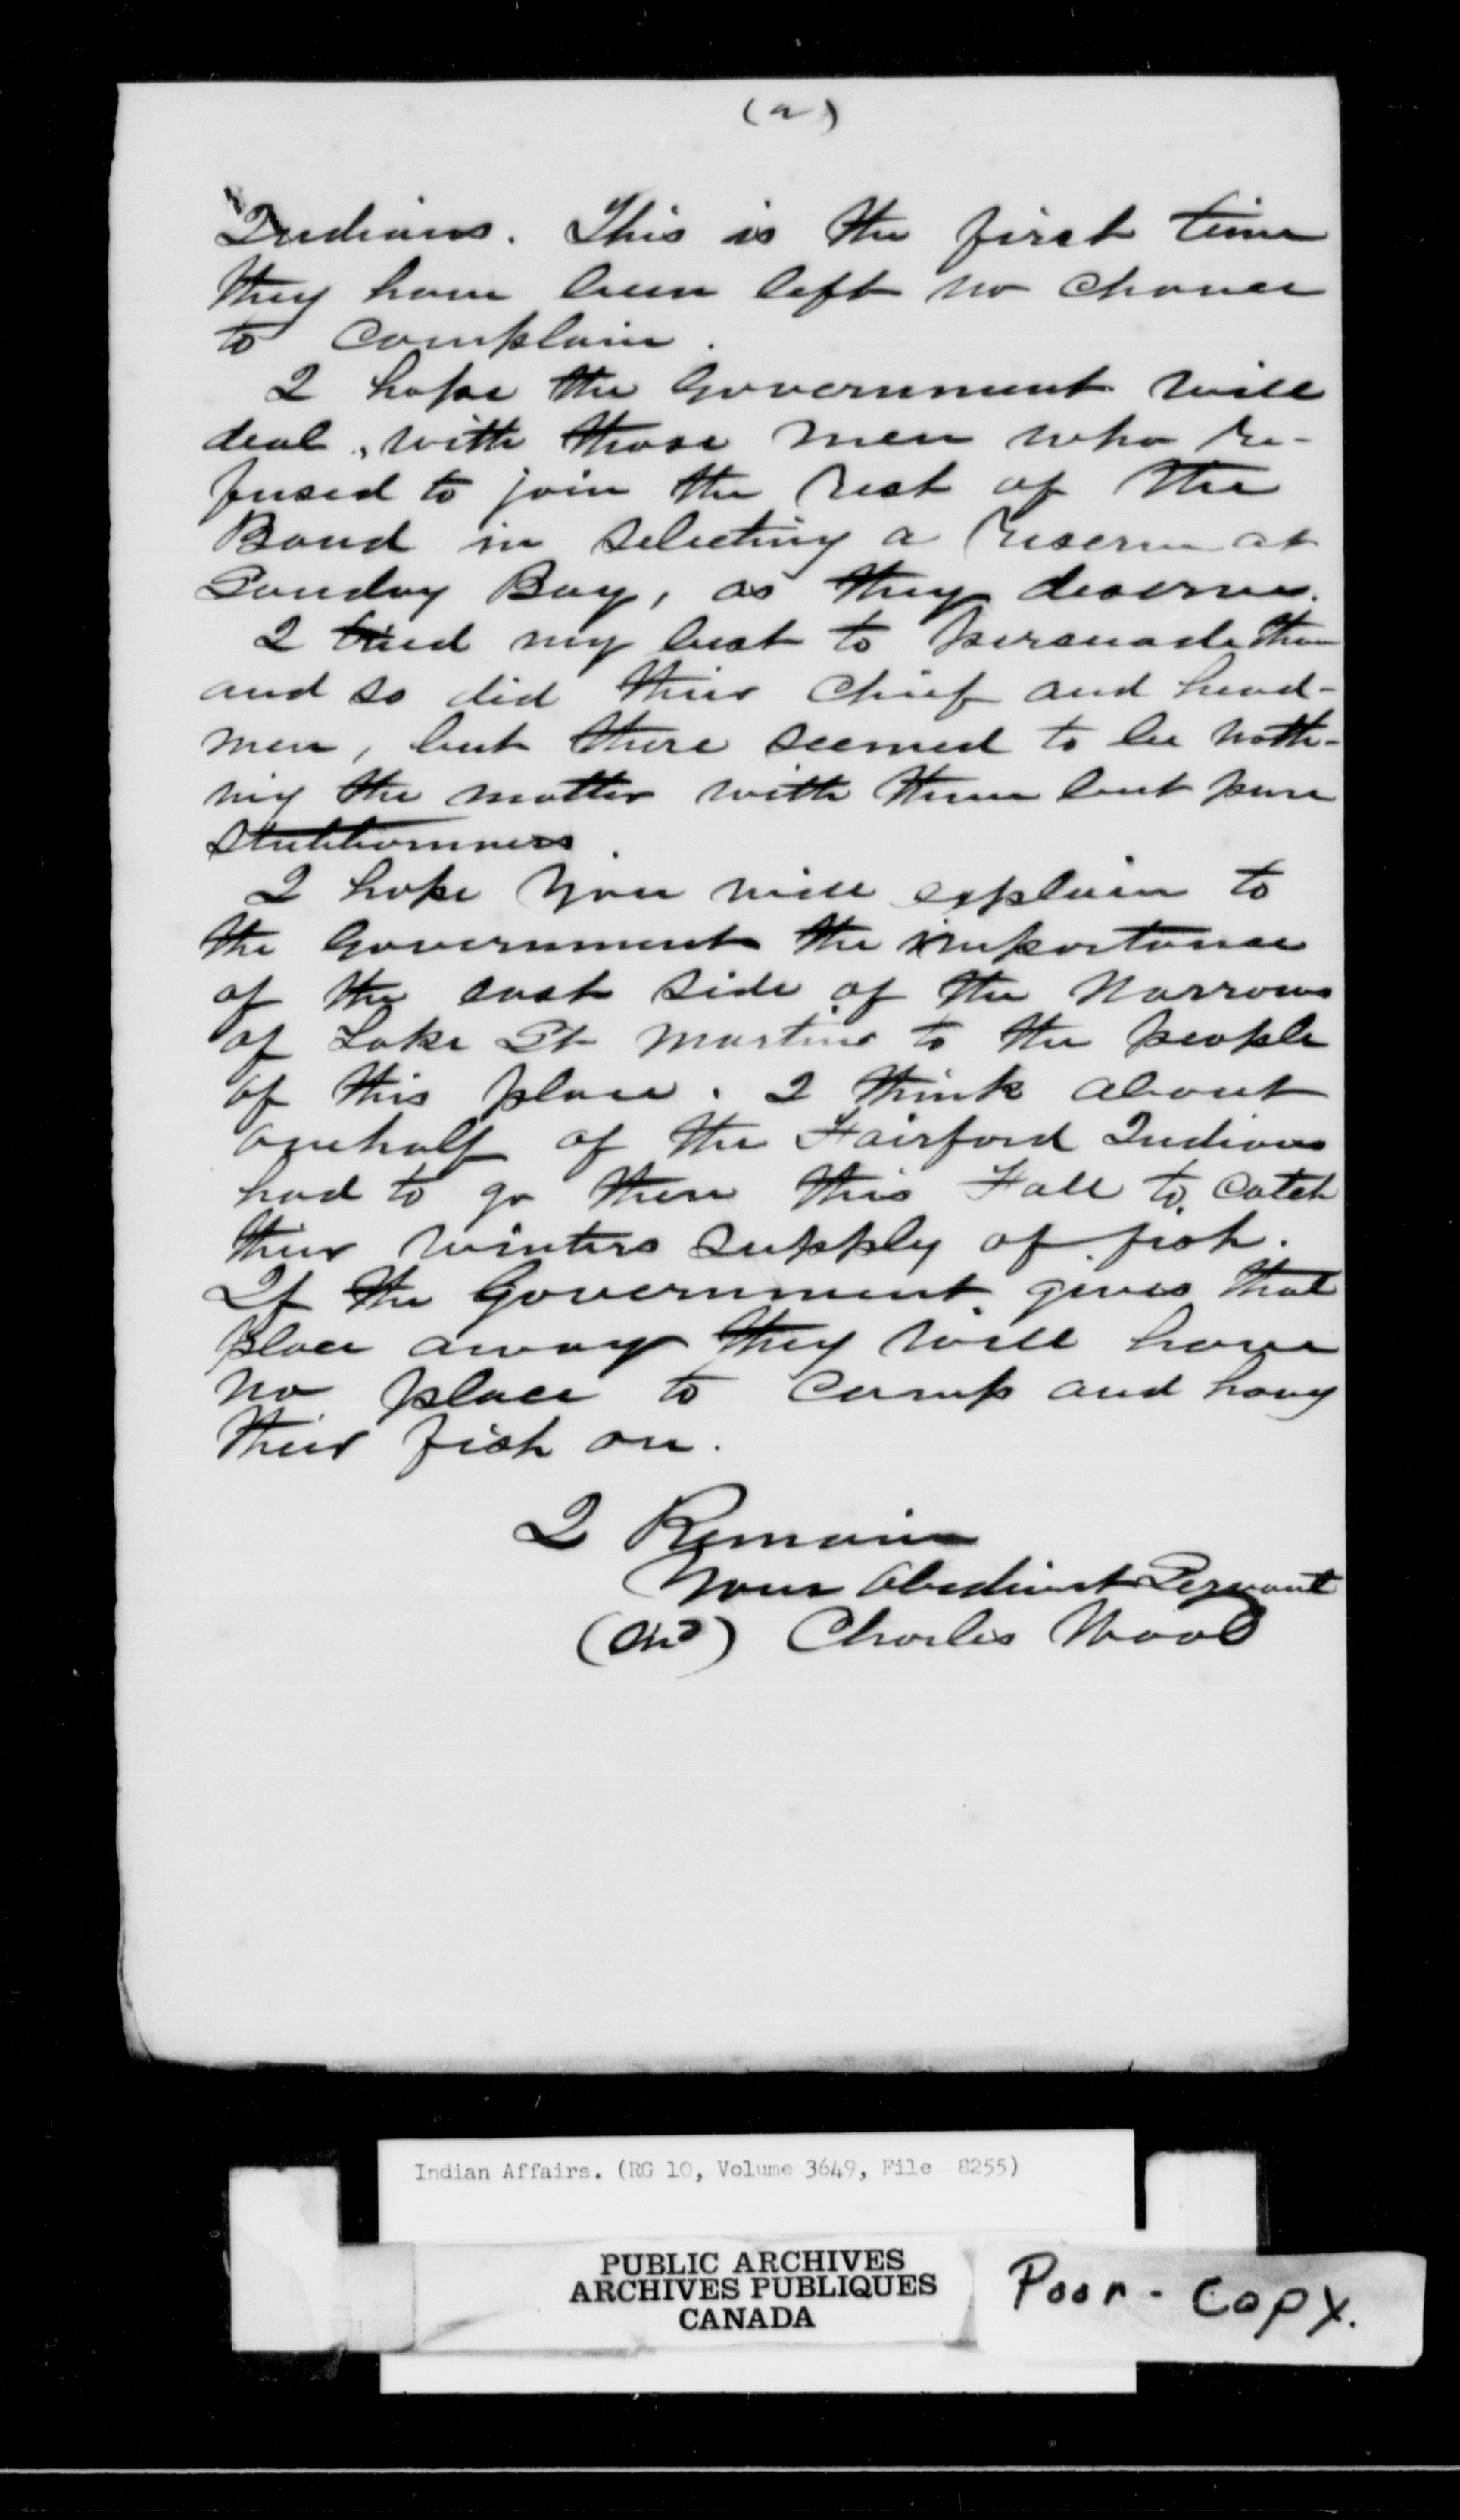 (2)
Indians. This is the first time
they have been left no chance
to complain.
I hope the Government will
deal, with those men who re-
fused to join the rest of the
Band in selecting a reserve at
Sandy Bay, as they deserve.
I tried my best to persuade them
and so did their Chief and head-
men, but there seemed to be noth-
ing the matter with them but pure
stubbornness.
I hope you will explain to
the Government the importance
of the east side of the Narrows
of Lake St Martins to the people
of this place. I think about
onehalf of the Fairford Indians
had to go there this Fall to catch
their winters supply of fish.
If the Government gives that
place away they will have
no place to camp and hang
their fish on.
I Remain
Your obedient Servant
Charles Wood
Indian Affairs. (RG 10, Volume 3649, File 8255)
PUBLIC ARCHIVES
ARCHIVES PUBLIQUES
CANADA
Poor - Copy.